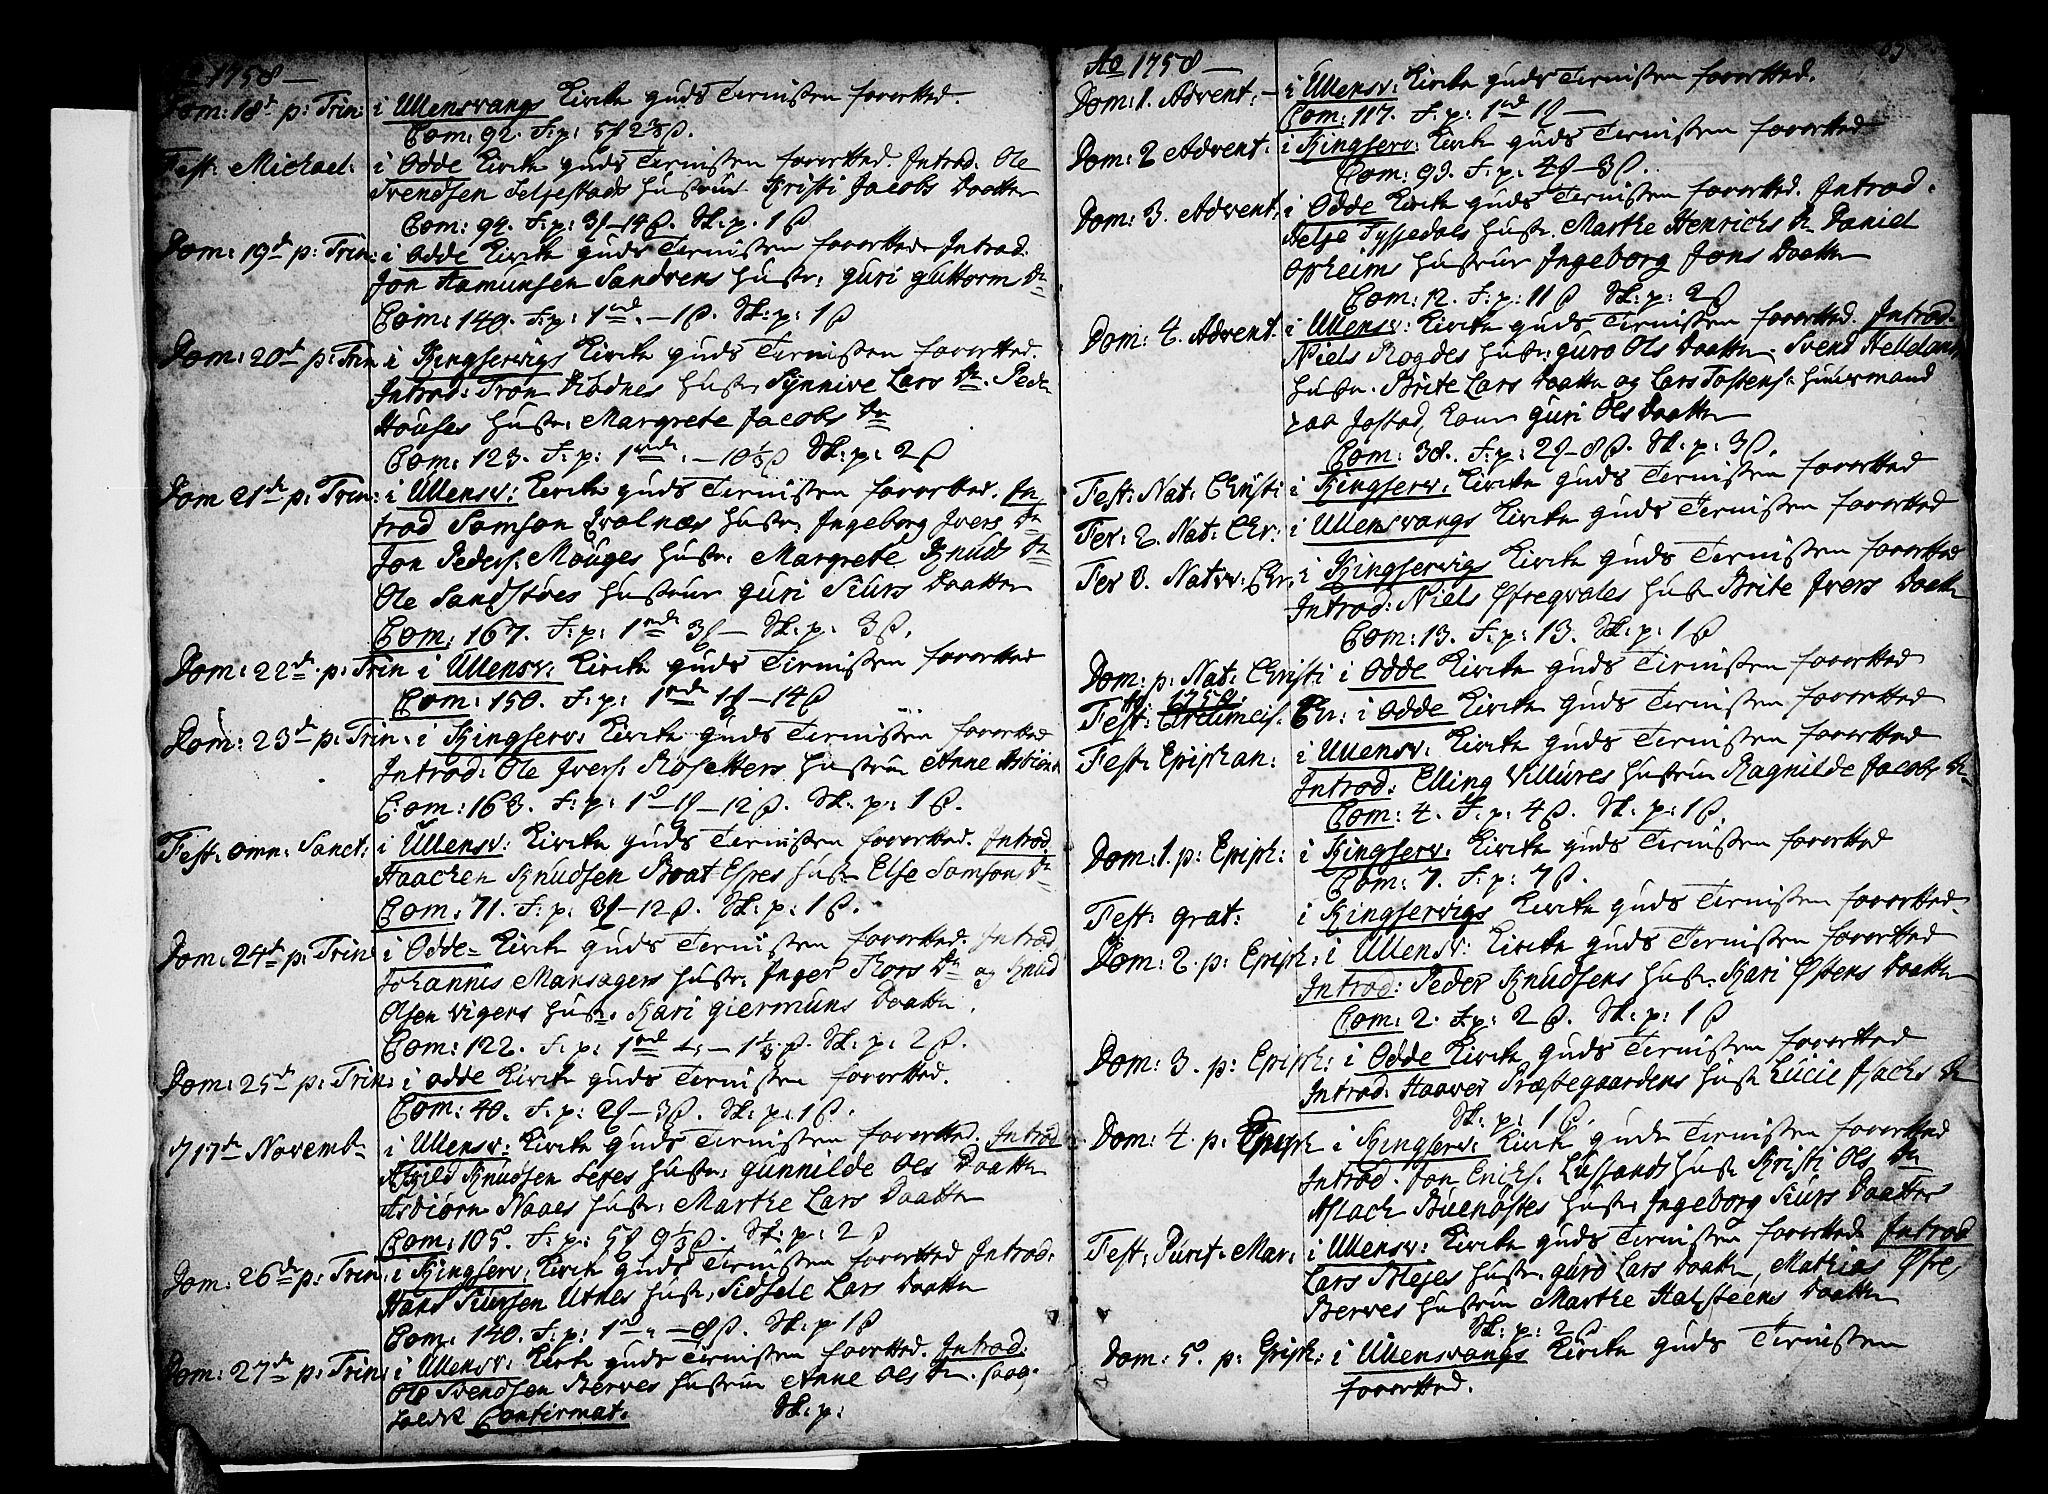 Ao 1758 —
Dom: 18d p: Trin: i Ullensvangs Kircke Guds Tienisten forretted.
Com: 92. F: p: 5 2⅔ß.
Fest: Michael: i Odde Kircke Guds Tienisten forretted. Introd: Ole
Svendsen Seljestads Hustrue Kristi Jacobs Daatter
Com: 94. F: p: 3 – 14ß. Sk: p. 1ß
Dom: 19d p: Trin: i Odde Kircke Guds Tienisten forretted. Introd.
Jon Aamunsen Sandvens Hustr: Guri Guttorm Dr
Com: 140. F: p: 1rd. – 1ß. Sk: p: 1ß
Dom: 20d p: Trin i Kingservigs Kircke Guds Tienisten forretted.
Introd: Tron Rødnes Hustr: Synnive Lars Dr. Peder
Houses Hustr: Margrete Jacobs Dr
Com: 123. F: p: 1rd. – 10⅓ß Sk: p: 2ß
Dom 21d p: Trin: i Ullensv: Kircke Guds Tienisten forretted. In
trod Samson Hustr. Ingeborg Ivers Dr
Jon Peders: Mouges Hustr: Margrete Knuds Dr
Ole Sandstøes Hustrue Guri Siurs Daatter
Com: 167. F: p: 1rd 3 – Sk: p: 3ß.
Dom: 22d p: Trin i Ullensv: Kircke Guds Tienisten forretted
Com: 150. F: p: 1rd 1 – 14ß
Dom: 23d p: Trin: i Kingserv: Kircke Guds Tienisten forretted
Introd: Ole Ivers: Røsetters Hustrue Anne Asbiørns
Com: 163. F: p: 1 – 1 – 12ß. Sk: p: 1ß.
Fest: omn: Sanct: i Ullensv: Kircke Guds Tienisten forretted. Introd.
Haachen Knudsen Hustr Else Samsons Dr
Com: 71. F: p: 3 – 12ß. Sk: p: 1ß.
Dom: 24d p: Trin i Odde Kircke Guds Tienisten forretted. Introd
Johannis Mansagers Hustr: Inger Dr og Knud
Olsen Vigers Hustr. Kari Giermuns Daatter.
Com: 122. F: p: 1rd – 1⅓ß. Sk: p: 2ß.
Dom: 25d p: Trin: i Odde Kircke Guds Tienisten forretted.
Com: 40. F: p: 2 – 3ß. Sk: p: 1ß.
17d Novembr i Ullensv: Kircke Guds Tienisten forretted. Introd
Knudsen Hustr: Gunnilde Ols Daatter
Asbiørn Naaes Hustr: Marthe Lars Daatter
Com: 105. F: p: 5 9⅓ß. Sk: p: 2ß
Dom: 26d p: Trin: i Kingserv: Kircke Guds Tienisten forretted Introd:
Hans Siursen Utnes Hustr: Sidsele Lars Daatter
Com: 140. F: p: 1 – 8ß. Sk: p 1ß
Dom: 27d p: Trin: i Ullensv: Kircke Guds Tienisten forretted. Introd:
Ole Svendsen Berves Hustrue Anne Ols Dr. saa og
holdt Confirmat. Sk: p:
Ao 1758 —
Dom: 1. Advent: – i Ullensv: Kircke Guds Tienisten forretted.
Com: 117. F: p: 1rd 1 –
Dom: 2 Advent. i Kingserv: Kircke Guds Tienisten forretted
Com: 93. F: p: 4 – 3ß.
Dom: 3. Advent: i Odde Kircke Guds Tienisten forretted. Introd.
Helje Tyssedals Hustr. Marthe Henrichs Dr Daniel
Opheims Hustrue Ingeborg Jons Daatter
Com: 12. F: p: 11ß Sk: p: 2ß
Dom: 4. Advent. i Ullensv: Kircke Guds Tienisten forretted. Introd.
Niels Rogdes Hustr: Guro Ols Daatter. Svend Hellelands
Hustr. Brite Lars Daatter og Lars Tostens: Huusmand
paa Jåstad, Kone Guri Ols Daatter
Com: 38. F: p: 2 – 8ß. Sk: p: 3ß.
Fest: Nat: Christi i Kingserv: Kircke Guds Tienisten forretted
Fer: 2. Nat: Chr: i Ullensvangs Kircke Guds Tienisten forretted
Fer 3. Natv: Chr: i Kingservigs Kircke Guds Tienisten forretted
Introd: Niels Hustr Brite Ivers Daatter
Com: 13. F: p: 13. Sk: p: 1ß
Dom: p: Nat: Christi i Odde Kircke Guds Tienisten forretted
Ao 1759.
Fest: Circumcis. Chr: i Odde Kircke Guds Tienisten forretted
Fest: Epiphan: i Ullensv: Kircke Guds Tienisten forretted
Introd: Elling Villures Hustrue Ragnilde Jacobs Dr
Com: 4. F: p: 4ß. Sk: p: 1ß.
Dom: 1. p: Epiph: i Kingserv: Kircke Guds Tienisten forretted
Com: 7. F: p: 7ß.
Fest: grat: i Kingservigs Kircke Guds Tienisten forretted.
Dom: 2. p: Epiph: i Ullensv: Kircke Guds Tienisten forretted
Introd: Peder Knudsens Hustr. Kari Østens Daatter
Com: 2. F: p: 2ß. Sk: p: 1ß
Dom: 3. p: Epiph: i Odde Kircke Guds Tienisten forretted
Introd: Haaver Præstegaardens Hustr Lucie Isachs Dr
Sk: p: 1ß.
Dom: 4. p: Epiph i Kingserv: Kircke Guds Tienisten forretted
Introd. Jon Erichs. Lussands Hustr Kristi Ols Dr
Aslach Buenøstes Hustr: Ingeborg Siurs Daatter
Fest: Purit: Mar: i Ullensv: Kircke Guds Tienisten forretted Introd
Lars Blejes Hustr: Guro Lars Daatter, Mathias Øfre
Berves Hustrue Marthe Halsteens Daatter
Sk: p: 2ß
Dom: 5. p: Epiph: i Ullensvangs Kircke Guds Tienisten
forretted.